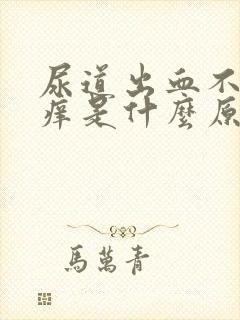 尿道出血不
痒是什麼原
馬萬青